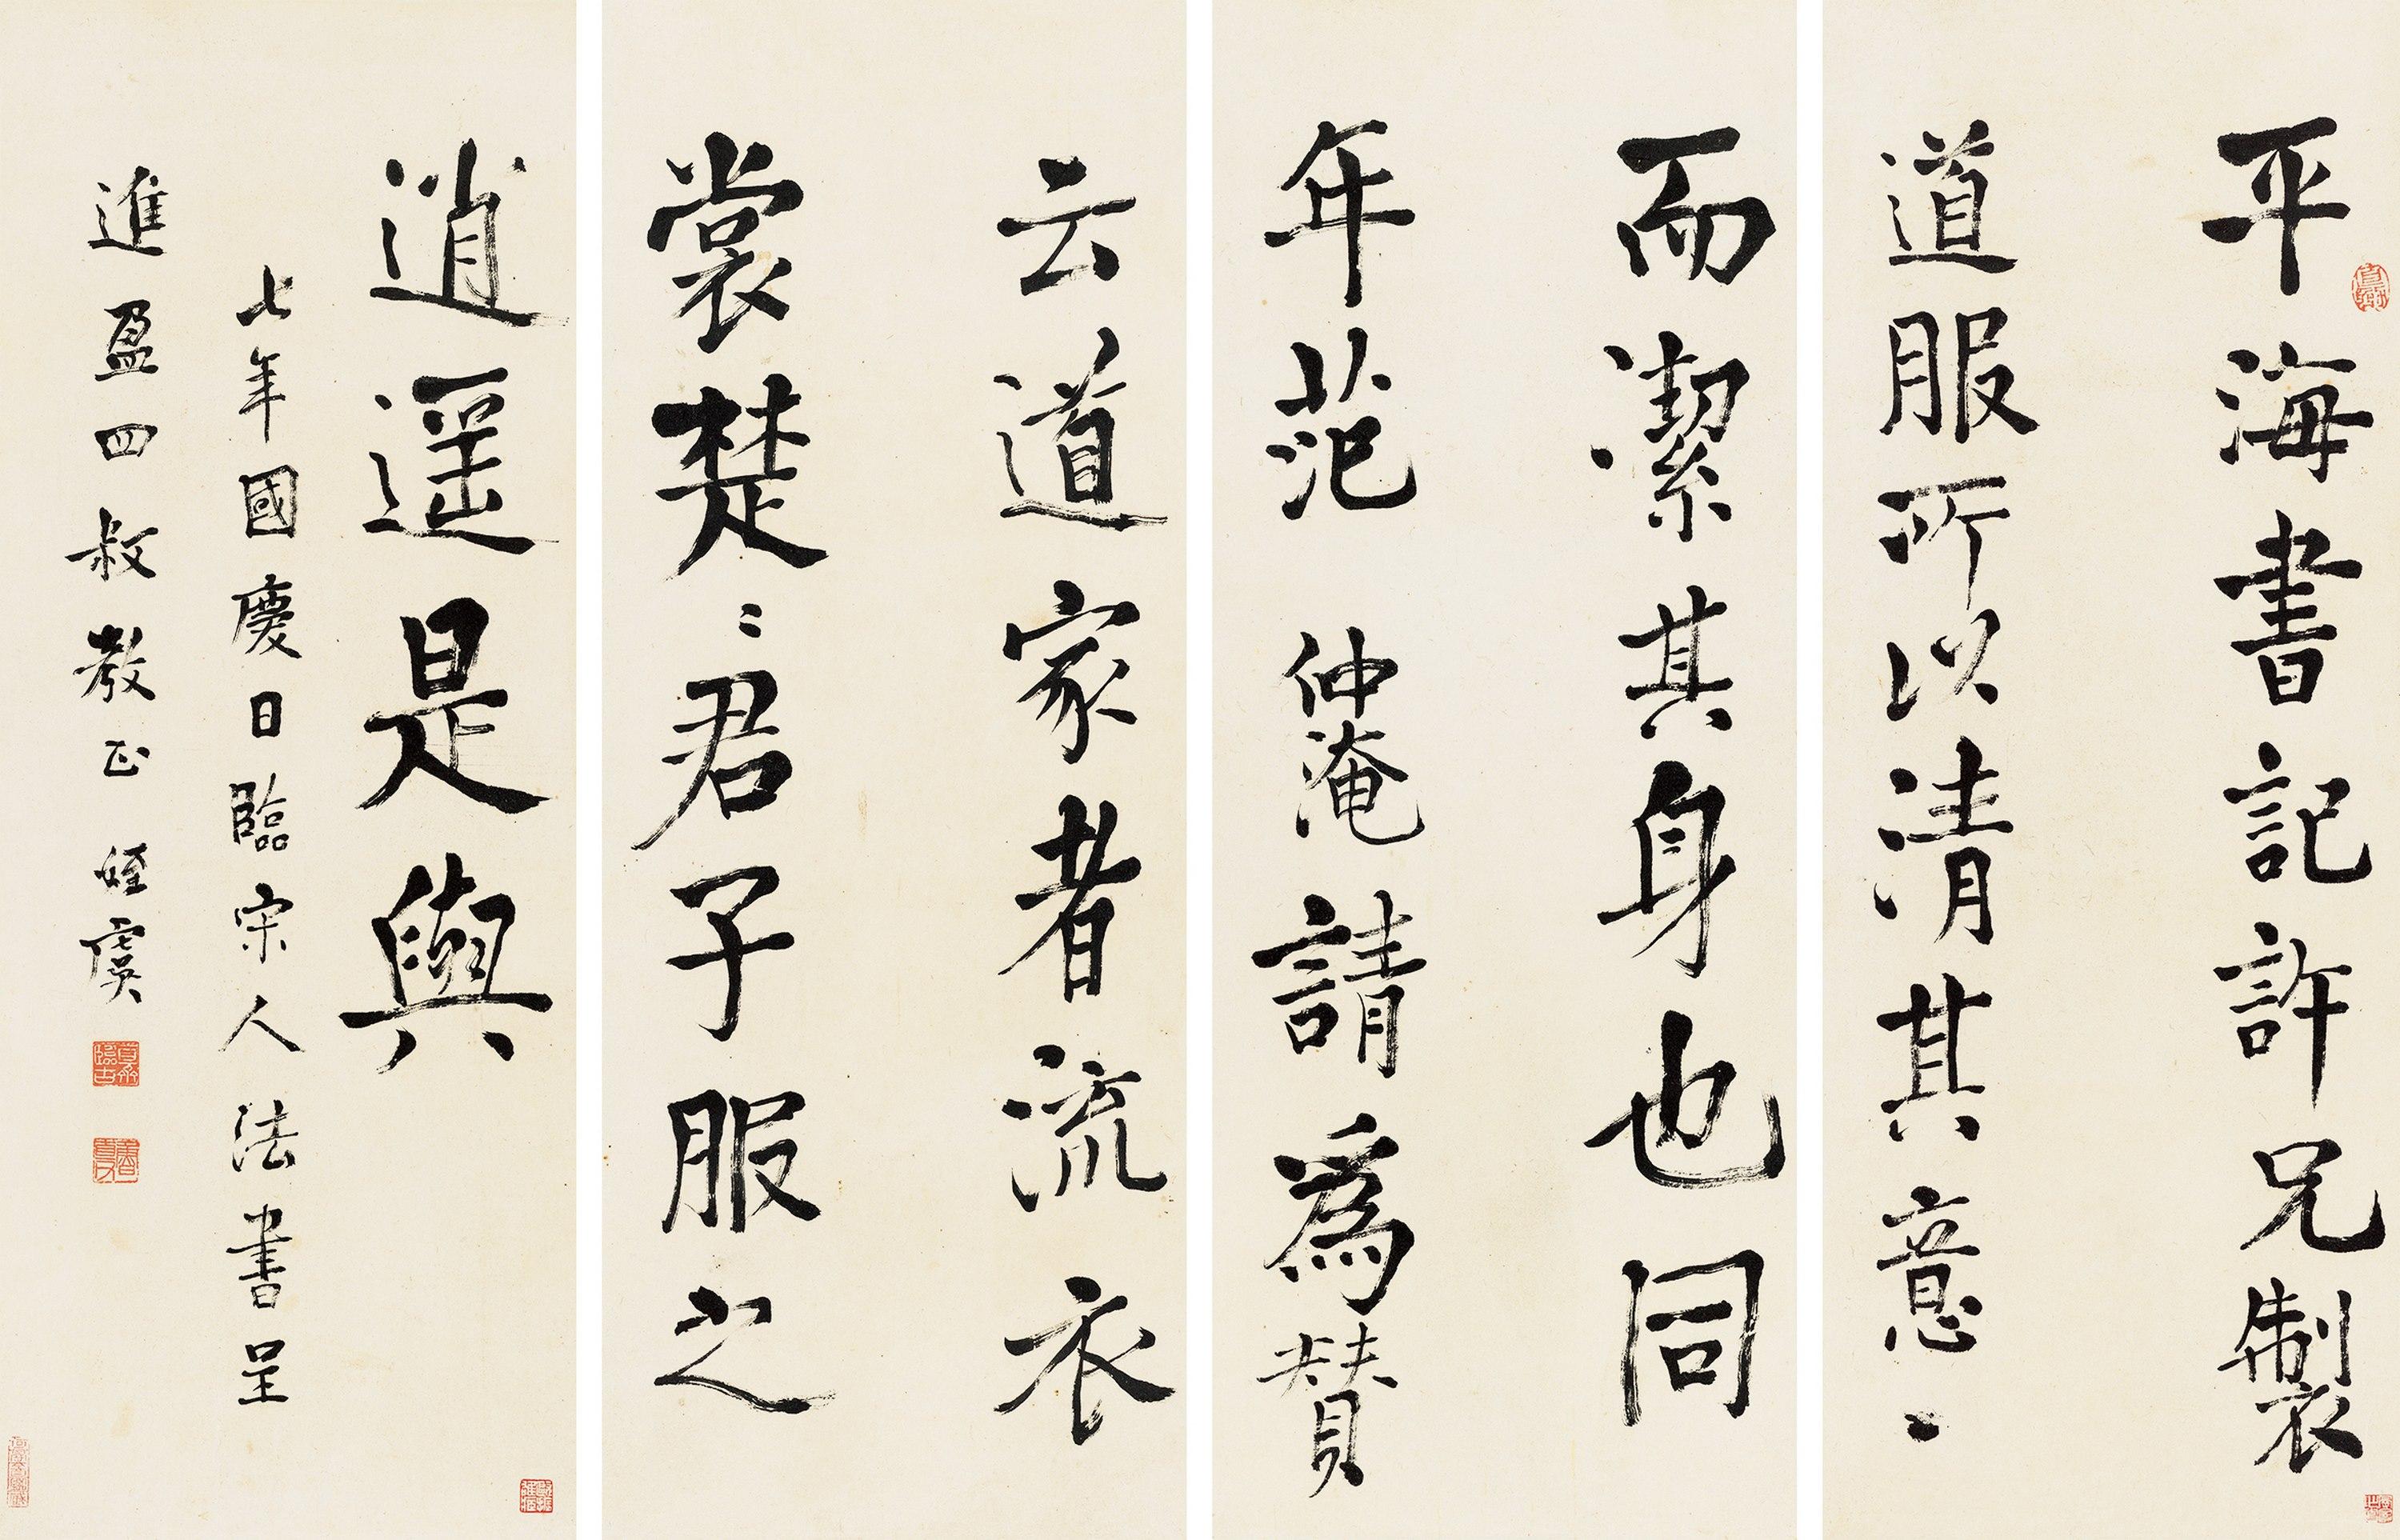 平海書記許兄製
道服所以清其意
而潔其身也同
年范仲淹請為贊
云道家者流衣
裳楚〻君子服之
逍遥是與
七年國慶日臨宋人法書呈
進盈四叔教正 姪虞